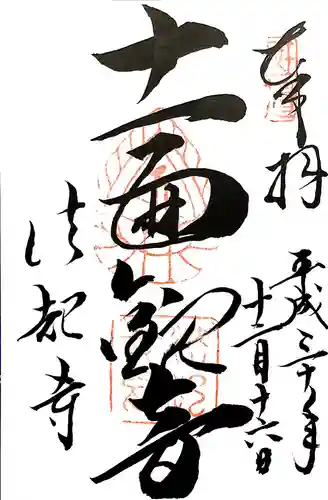 奉拝
平成三十年
十二月十六日
十一面観音
法起寺